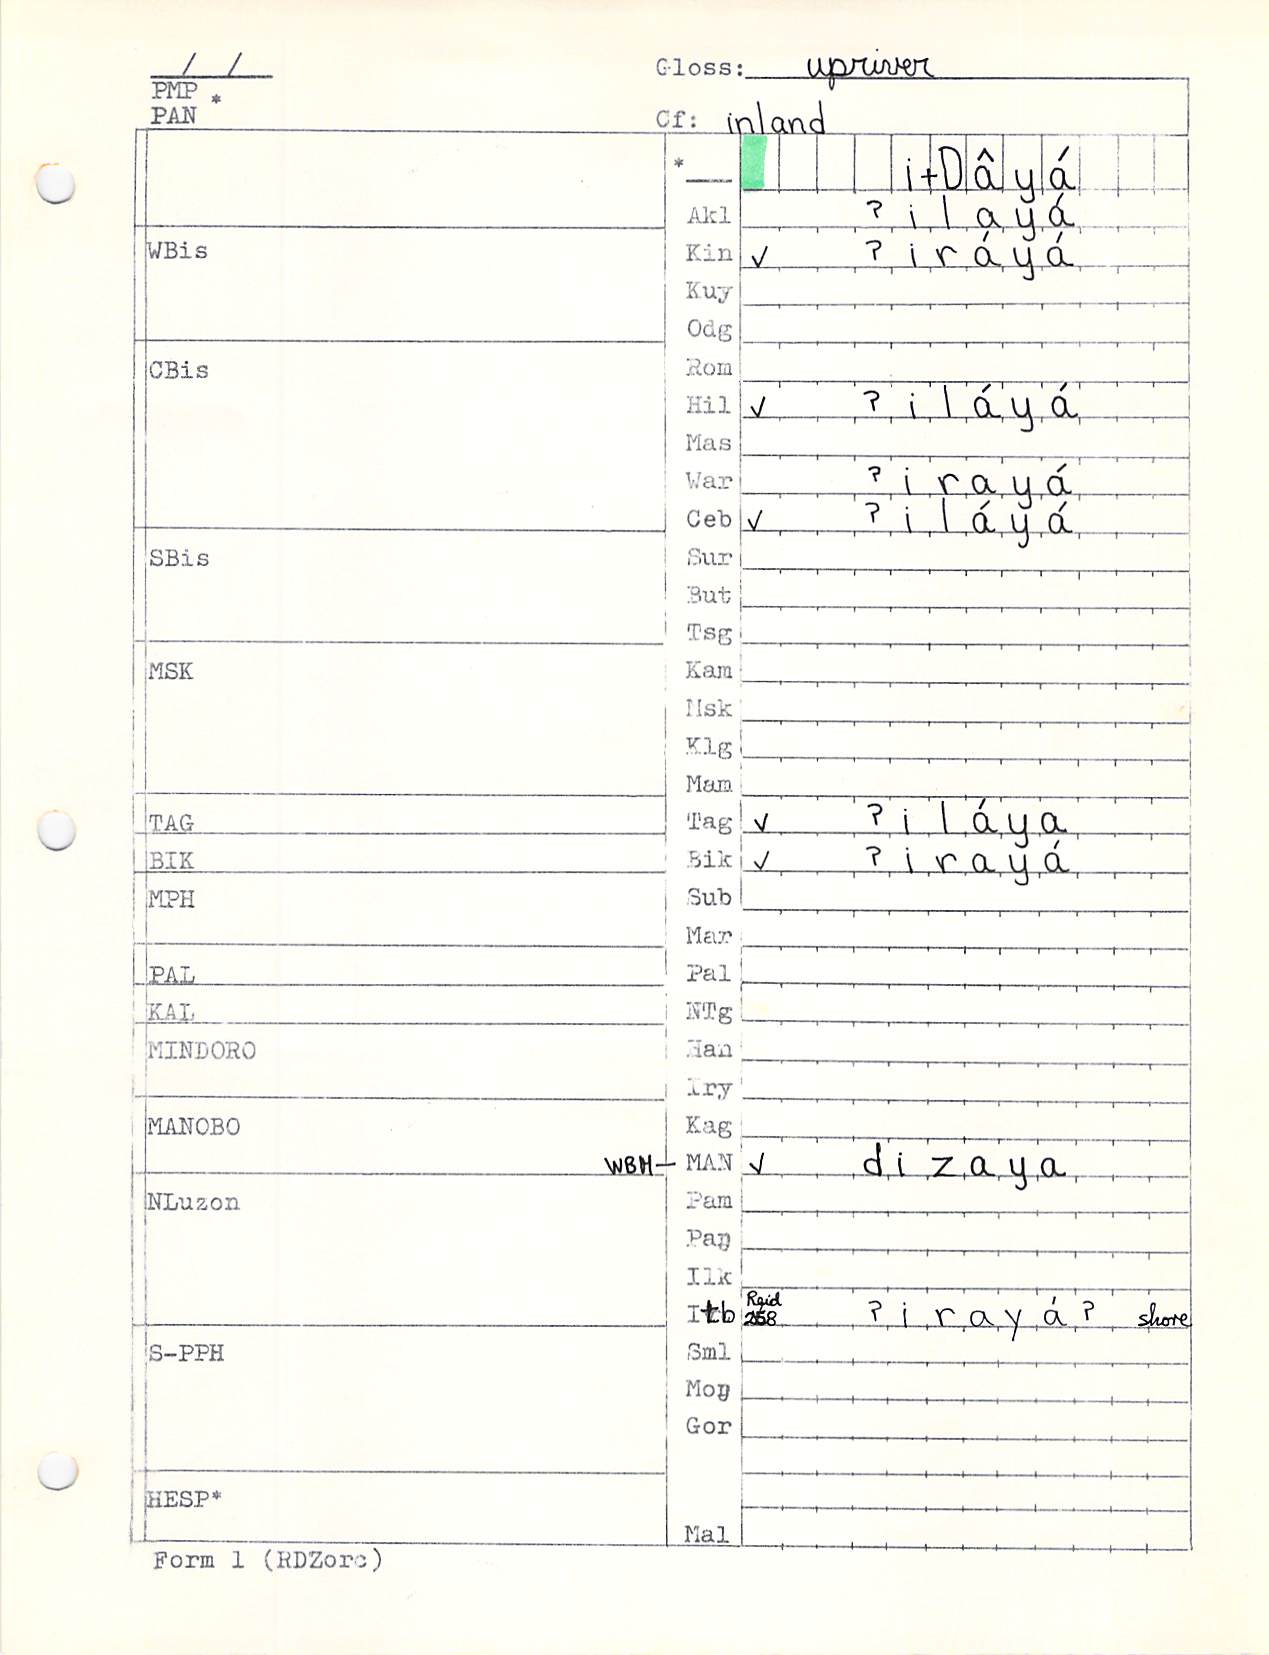 / /
Gloss: upriver
PMP *
PAN
Cf: inland
* i+Dâyá
Akl ʔilayá
WBis
Kin ✓ ʔiráyá
Kuy
Odg
CBis
Rom
Hil ✓ ʔiláyá
Mas
War ʔirayá
Ceb ✓ ʔiláyá
SBis
Sur
But
Tsg
MSK
Kam
Msk
Klg
Mam
TAG
Tag ✓ ʔiláya
BIK
Bik ✓ ʔirayá
MPH
Sub
Mar
PAL
Pal
KAL
NTg
MINDORO
Han
Iry
MANOBO
Kag
WBM— MAN ✓ dizaya
NLuzon
Pam
Paŋ
Ilk
Itb Reid 258 ʔirayáʔ shore
S-PPH
Sml
Moŋ
Gor
HESP*
Mal
Form 1 (RDZorc)